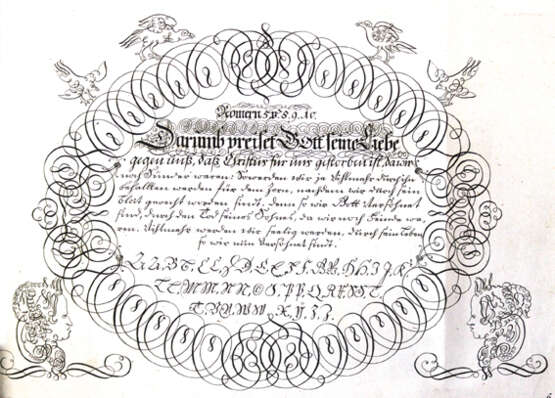 Romern 5. V. 8. 9. 10.
Darumb preiset Gott seine Liebe
gegen unß, daß Christus für uns gestorben ist, da wir
noch Sünder waren: So werden wir je Vihlmehr durch ihn
behalten werden für dem Zorn, nachdem wir durch sein
Blut gerecht worden sindt. denn so wir Gott Versöhnet
sind, durch den Tod seines Sohnes, da wir noch Feinde wa=
ren. Vihlmehr werden wir seelig werden, durch sein Leben
so wir nun Versöhnet sindt.